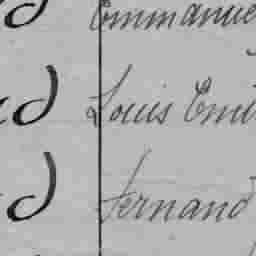 Emmanue
Louis Emi
Fernand